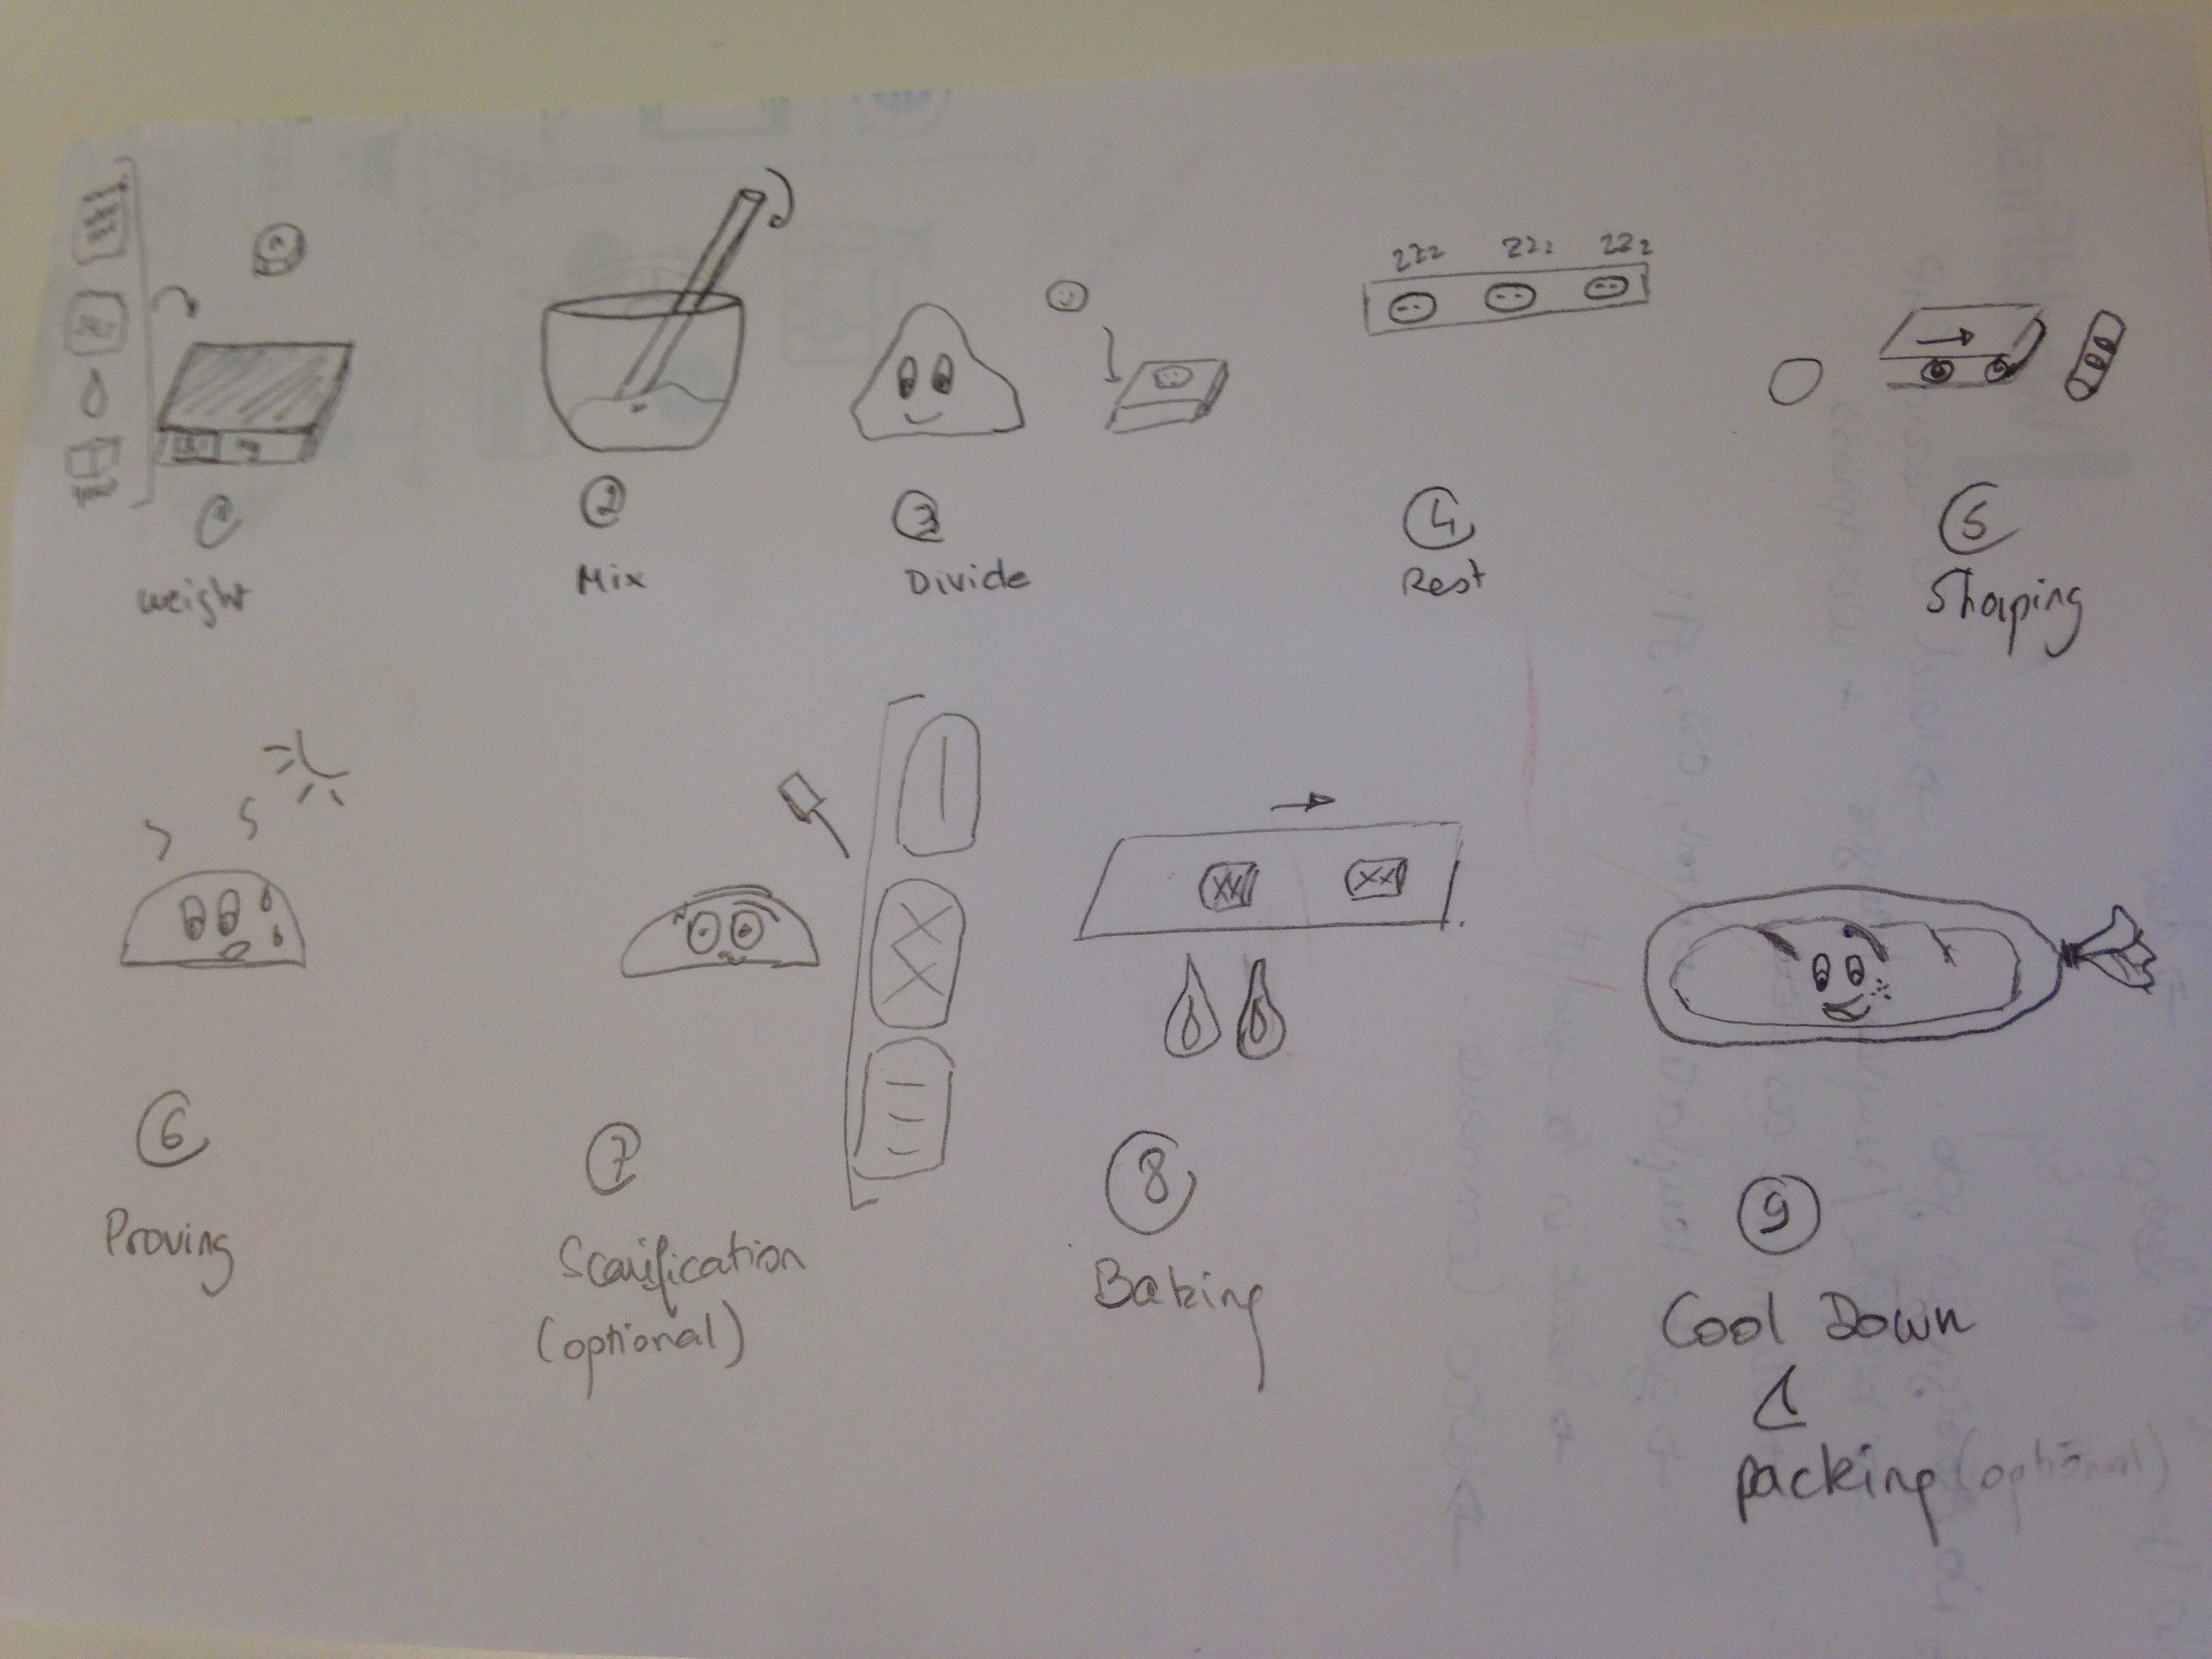 1
weight
2
Mix
3
Divide
zzz zzz zzz
4
Rest
5
Shaping
6
Proving
7
Scarification
(optional)
8
Baking
9
Cool Down
&
packing (optional)